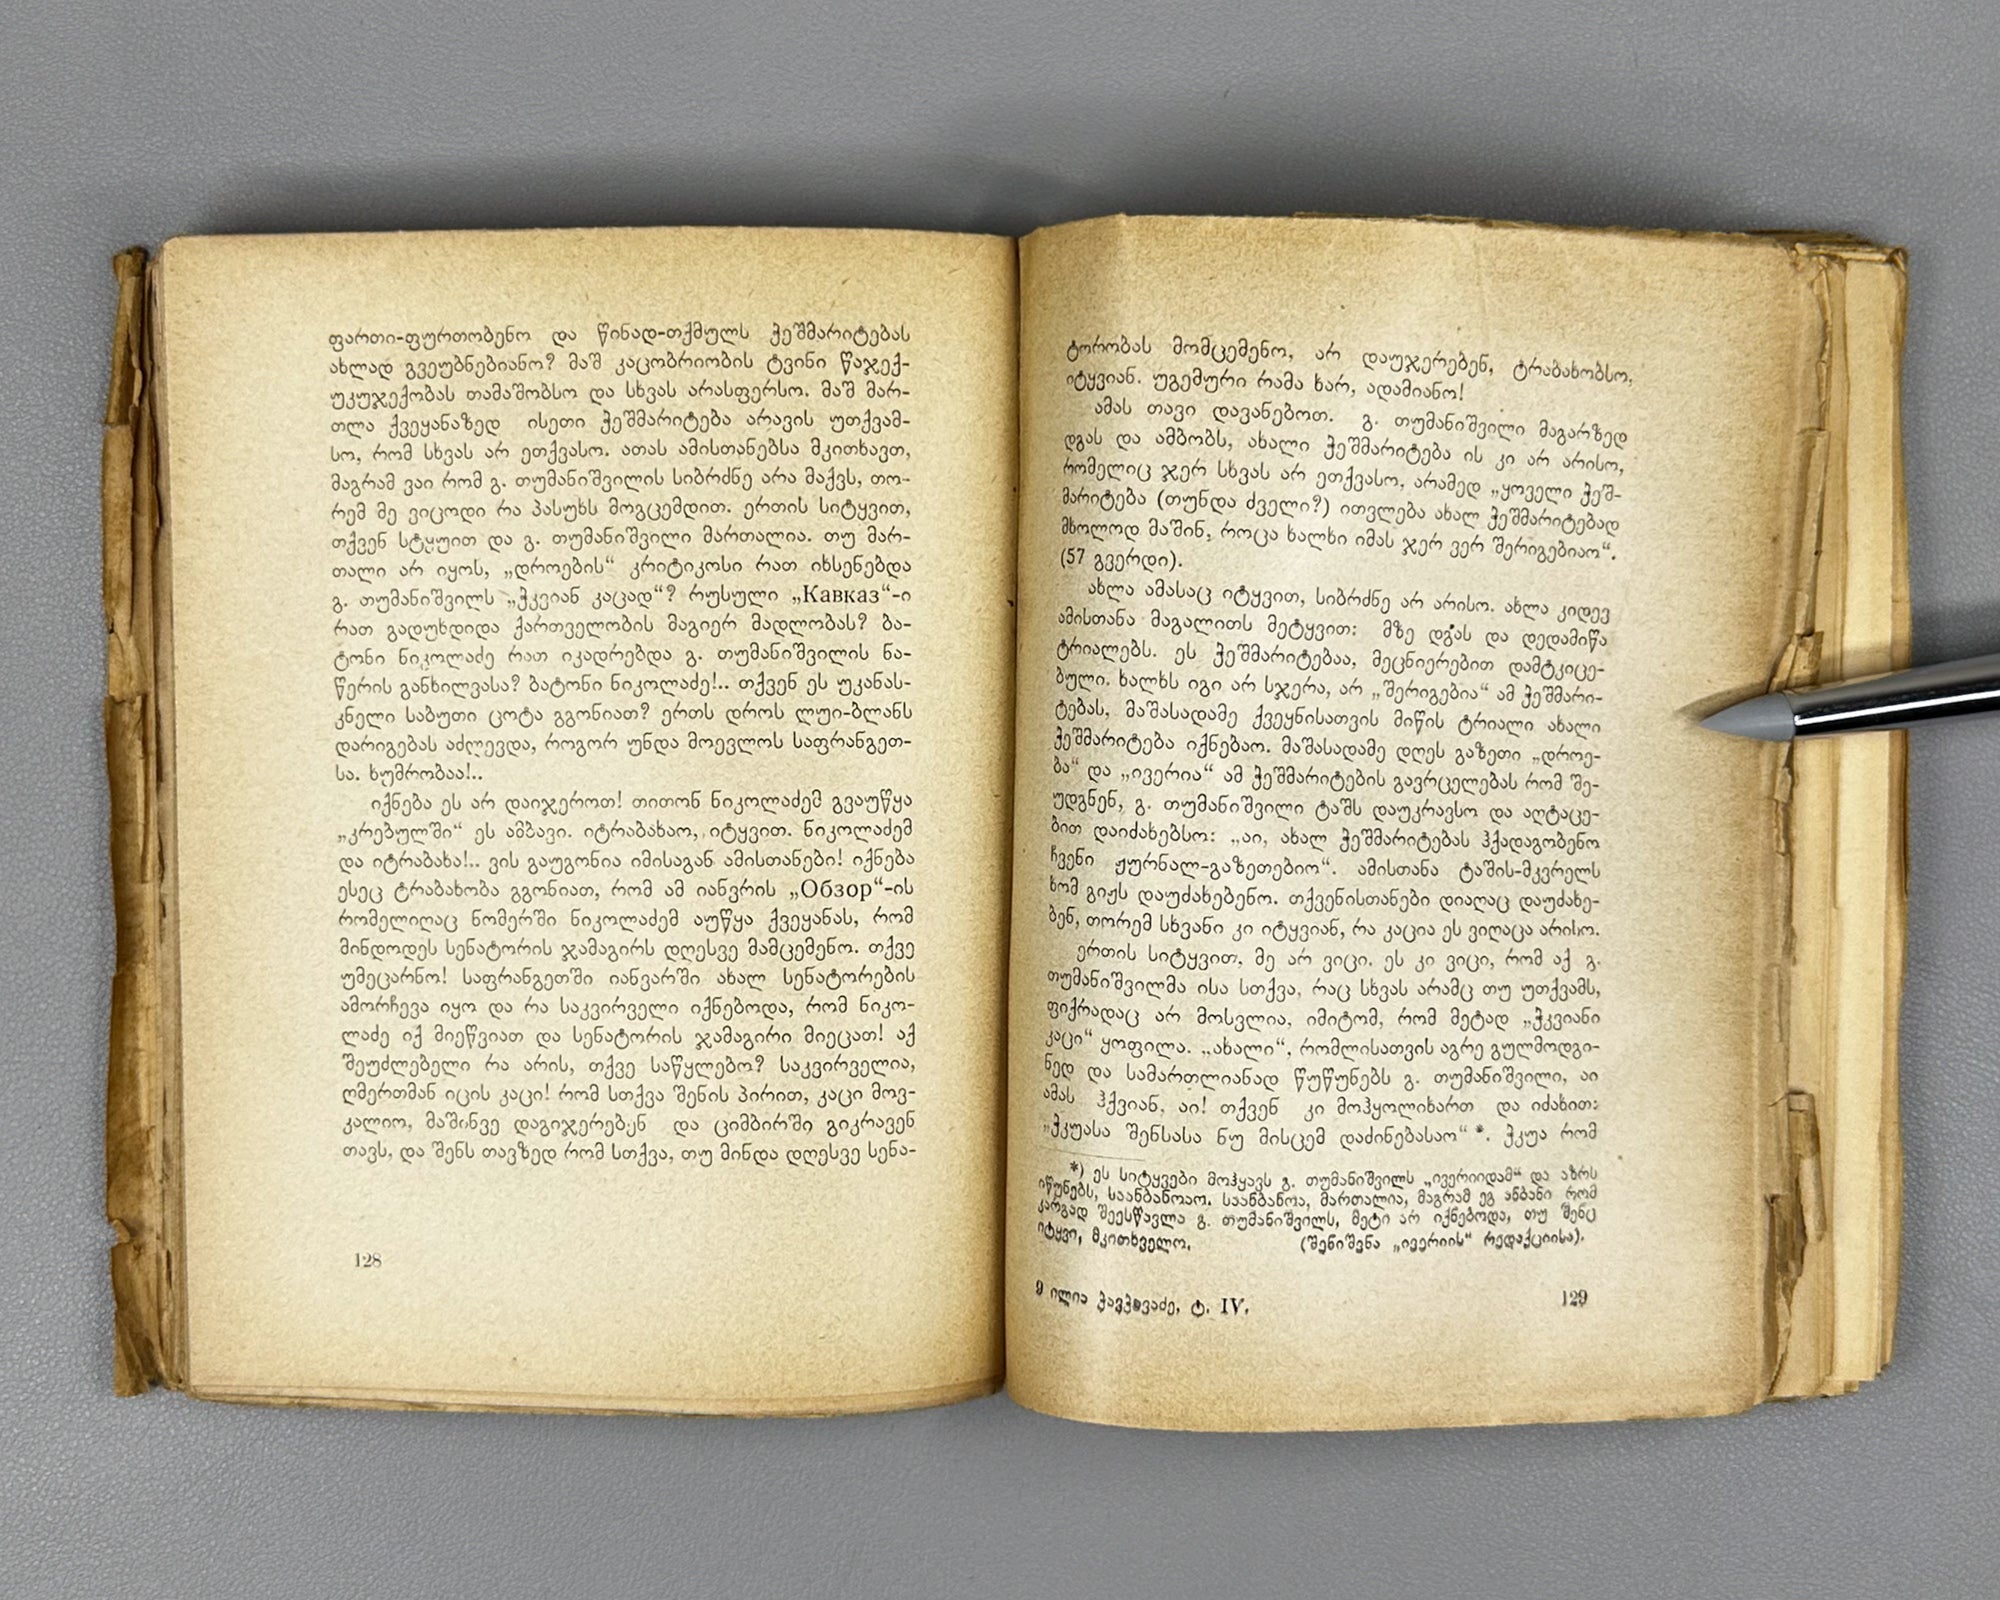 ფართი-ფურთობენო და წინად-თქმულს ჭეშმარიტებას
ახლად გვეუბნებიანო? მაშ კაცობრიობის ტვინი წაჯექ-
უკუჯექობას თამაშობსო და სხვას არასფერსო. მაშ მარ-
თლა ქვეყანაზედ ისეთი ჭეშმარიტება არავის უთქვამ-
სო, რომ სხვას არ ეთქვასო. ათას ამისთანებსა მკითხავთ,
მაგრამ ვაი რომ გ. თუმანიშვილის სიბრძნე არა მაქვს, თო-
რემ მე ვიცოდი რა პასუხს მოგცემდით. ერთის სიტყვით,
თქვენ სტყუით და გ. თუმანიშვილი მართალია. თუ მარ-
თალი არ იყოს, „დროების“ კრიტიკოსი რათ იხსენებდა
გ. თუმანიშვილს „ჭკვიან კაცად“? რუსული „Кавказ“-ი
რათ გადუხდიდა ქართველობის მაგიერ მადლობას? ბა-
ტონი ნიკოლაძე რათ იკადრებდა გ. თუმანიშვილის ნა-
წერის განხილვასა? ბატონი ნიკოლაძე!.. თქვენ ეს უკანას-
კნელი საბუთი ცოტა გგონიათ? ერთს დროს ლუი-ბლანს
დარიგებას აძლევდა, როგორ უნდა მოევლოს საფრანგეთ-
სა. ხუმრობაა!..
იქნება ეს არ დაიჯეროთ! თითონ ნიკოლაძემ გვაუწყა
„კრებულში“ ეს ამბავი. იტრაბახაო, იტყვით. ნიკოლაძემ
და იტრაბახა!.. ვის გაუგონია იმისაგან ამისთანები! იქნება
ესეც ტრაბახობა გგონიათ, რომ ამ იანვრის „Обзор“-ის
რომელიღაც ნომერში ნიკოლაძემ აუწყა ქვეყანას, რომ
მინდოდეს სენატორის ჯამაგირს დღესვე მამცემენო. თქვე
უმეცარნო! საფრანგეთში იანვარში ახალ სენატორების
ამორჩევა იყო და რა საკვირველი იქნებოდა, რომ ნიკო-
ლაძე იქ მიეწვიათ და სენატორის ჯამაგირი მიეცათ! აქ
შეუძლებელი რა არის, თქვე საწყლებო? საკვირველია,
ღმერთმან იცის კაცი! რომ სთქვა შენის პირით, კაცი მოვ-
კალიო, მაშინვე დაგიჯერებენ და ციმბირში გიკრავენ
თავს, და შენს თავზედ რომ სთქვა, თუ მინდა დღესვე სენა-
128
ტორობას მომცემენო, არ დაუჯერებენ, ტრაბახობსო,
იტყვიან. უგემური რამა ხარ, ადამიანო!
ამას თავი დავანებოთ. გ. თუმანიშვილი მაგარზედ
დგას და ამბობს, ახალი ჭეშმარიტება ის კი არ არისო,
რომელიც ჯერ სხვას არ ეთქვასო, არამედ „ყოველი ჭეშ-
მარიტება (თუნდა ძველი?) ითვლება ახალ ჭეშმარიტებად
მხოლოდ მაშინ, როცა ხალხი იმას ჯერ ვერ შერიგებიაო“.
(57 გვერდი).
ახლა ამასაც იტყვით, სიბრძნე არ არისო. ახლა კიდევ
ამისთანა მაგალითს მეტყვით: მზე დგას და დედამიწა
ტრიალებს. ეს ჭეშმარიტებაა, მეცნიერებით დამტკიცე-
ბული. ხალხს იგი არ სჯერა, არ „შერიგებია“ ამ ჭეშმარი-
ტებას, მაშასადამე ქვეყნისათვის მიწის ტრიალი ახალი
ჭეშმარიტება იქნებაო. მაშასადამე დღეს გაზეთი „დროე-
ბა“ და „ივერია“ ამ ჭეშმარიტების გავრცელებას რომ შე-
უდგნენ, გ. თუმანიშვილი ტაშს დაუკრავსო და აღტაცე-
ბით დაიძახებსო: „აი, ახალ ჭეშმარიტებას ჰქადაგობენო
ჩვენი ჟურნალ-გაზეთებიო“. ამისთანა ტაშის-მკვრელს
ხომ გიჟს დაუძახებენო. თქვენისთანები დიაღაც დაუძახე-
ბენ, თორემ სხვანი კი იტყვიან, რა კაცია ეს ვიღაცა არისო.
ერთის სიტყვით, მე არ ვიცი. ეს კი ვიცი, რომ აქ გ.
თუმანიშვილმა ისა სთქვა, რაც სხვას არამც თუ უთქვამს,
ფიქრადაც არ მოსვლია, იმიტომ, რომ მეტად „ჭკვიანი
კაცი“ ყოფილა. „ახალი“, რომლისათვის აგრე გულმოდგი-
ნედ და სამართლიანად წუწუნებს გ. თუმანიშვილი, აი
ამას ჰქვიან, აი! თქვენ კი მოჰყოლიხართ და იძახით:
„ჭკუასა შენსასა ნუ მისცემ დაძინებასაო“ *. ჭკუა რომ
*) ეს სიტყვები მოჰყავს გ. თუმანიშვილს „ივერიიდამ“ და აზრს
იწუნებს, საანბანოაო. საანბანოა, მართალია, მაგრამ ეგ ანბანი რომ
კარგად შეესწავლა გ. თუმანიშვილს, მეტი არ იქნებოდა, თუ შენც
იტყვი, მკითხველო. (შენიშვნა „ივერიის“ რედაქციისა).
9 ილია ჭავჭავაძე, ტ. IV. 129